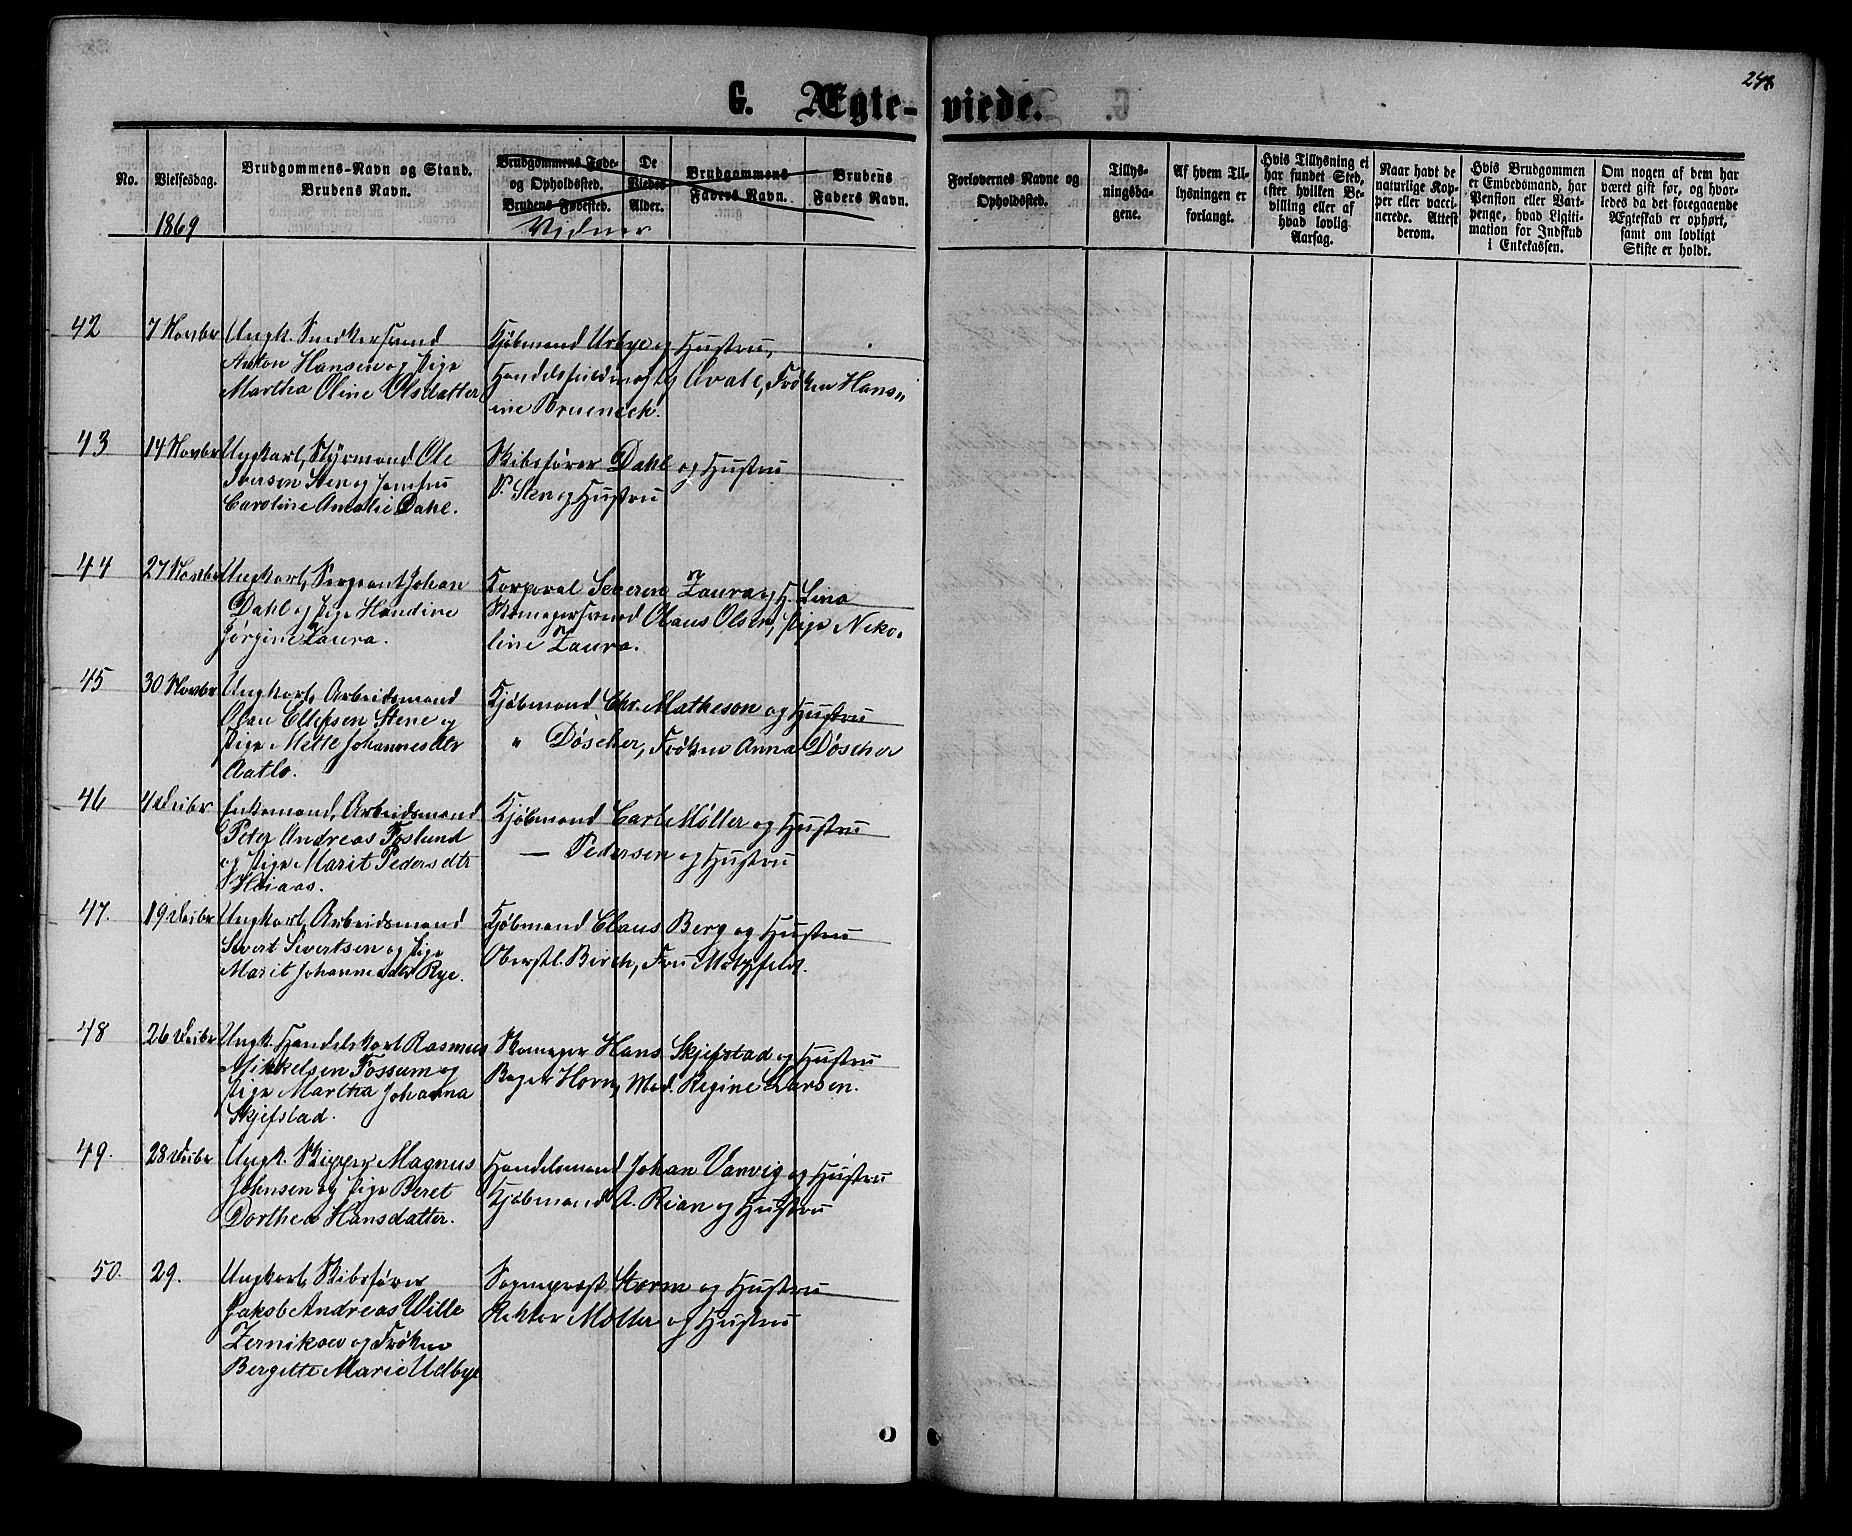 248
G. Ægte-viede.
No.
Vielsesdag.
1869
Brudgommens-Navn og Stand.
Brudens Navn.
Brudgommens Føde-
og Opholdssted.
Brudens Fødested.
Vidner
De
Viedes
Alder.
Brudgommens
Faders Navn.
Brudens
Faders Navn.
Forlovernes Navne og
Opholdssted.
Tillys-
ningsda-
gene.
Af hvem Til-
lysningen er
forlangt.
Hvis Tillysning ei
har fundet Sted,
efter hvilken Be-
villing eller af
hvad lovlig
Aarsag.
Naar havt de
naturlige Kop-
per eller vacci-
nerede. Attest
derom.
Hvis Brudgommen
er Embedsmand, har
Pension eller Vart-
penge, hvad Ligiti-
mation for Indskud
i Enkekassen.
Om nogen af dem har
været gift før, og hvor-
ledes da det foregaaende
Ægteskab er ophørt,
samt om lovligt
Skifte er holdt.
42
7 Novbr
Ungk. Snedkersvend
Anton Hansen og Pige
Martha Oline Olsdatter
Kjøbmand Urbye og Hustru,
Handelsfuldmægtig Qvale, Frøken Hans-
ine Brueneck.
43
14 Novbr
Ungkarl, Styrmand Ole
Iversen Sten og Jomfru
Caroline Amalie Dahl.
Skibsfører Dahl og Hustru
P. Sten og Hustru
44
27 Novbr
Ungkarl, Sergeant Johan
Dahl og Pige Handine
Jørgine Zaura.
Korporal Severin Zaura og H. Lina
Skomagersvend Olaus Olsen, Pige Niko-
line Zaura.
45
30 Novbr
Ungkarl, Arbeidsmand
Olau Ellefsen Stene og
Pige Mette Johannesdtr
Aatlo.
Kjøbmand Chr. Matheson og Hustru
" Døscher, Frøken Anna Døscher
46
4 Decbr
Enkemand, Arbeidsmand
Peter Andreas Foslund
og Pige Marit Pedersdtr
Kjøbmand Carl Møller og Hustru
— Pedersen og Hustru
47.
19 Decbr
Ungkarl, Arbeidsmand
Sivert Sivertsen og Pige
Marit Johannesdtr Rye.
Kjøbmand Claus Berg og Hustru
Oberstl. Birch, Fru Motzfeldt.
48
26 Decbr
Ungk. Handelskarl Rasmus
Mikkelsen Fossum og
Pige Martha Johanna
Skjefstad.
Skomager Hans Skjefstad og Hustru
Bager Horn, Mad. Regine Larsen.
49.
28 Decbr
Ungk. Skipper Magnus
Johnsen og Pige Beret
Dorthea Hansdatter.
Handelsmand Johan Vanvig og Hustru
Kjøbmand A. Rian og Hustru
50.
29.
Ungkarl, Skibsfører
Jakob Andreas Wille
Zernikow og Frøken
Bergitte Marie Udbye
Sognepræst Storm og Hustru
Rektor Møller og Hustru